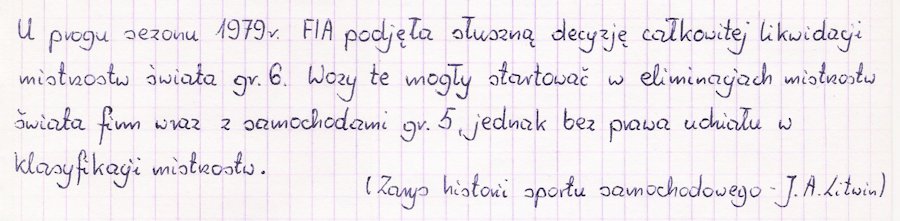 U progu sezonu 1979r. FIA podjęła słuszną decyzję całkowitej likwidacji
mistrzostw świata gr. 6. Wozy te mogły startować w eliminacjach mistrzostw
świata firm wraz z samochodami gr. 5, jednak bez prawa udziału w
klasyfikacji mistrzostw.
(Zarys historii sportu samochodowego - J.A. Litwin)